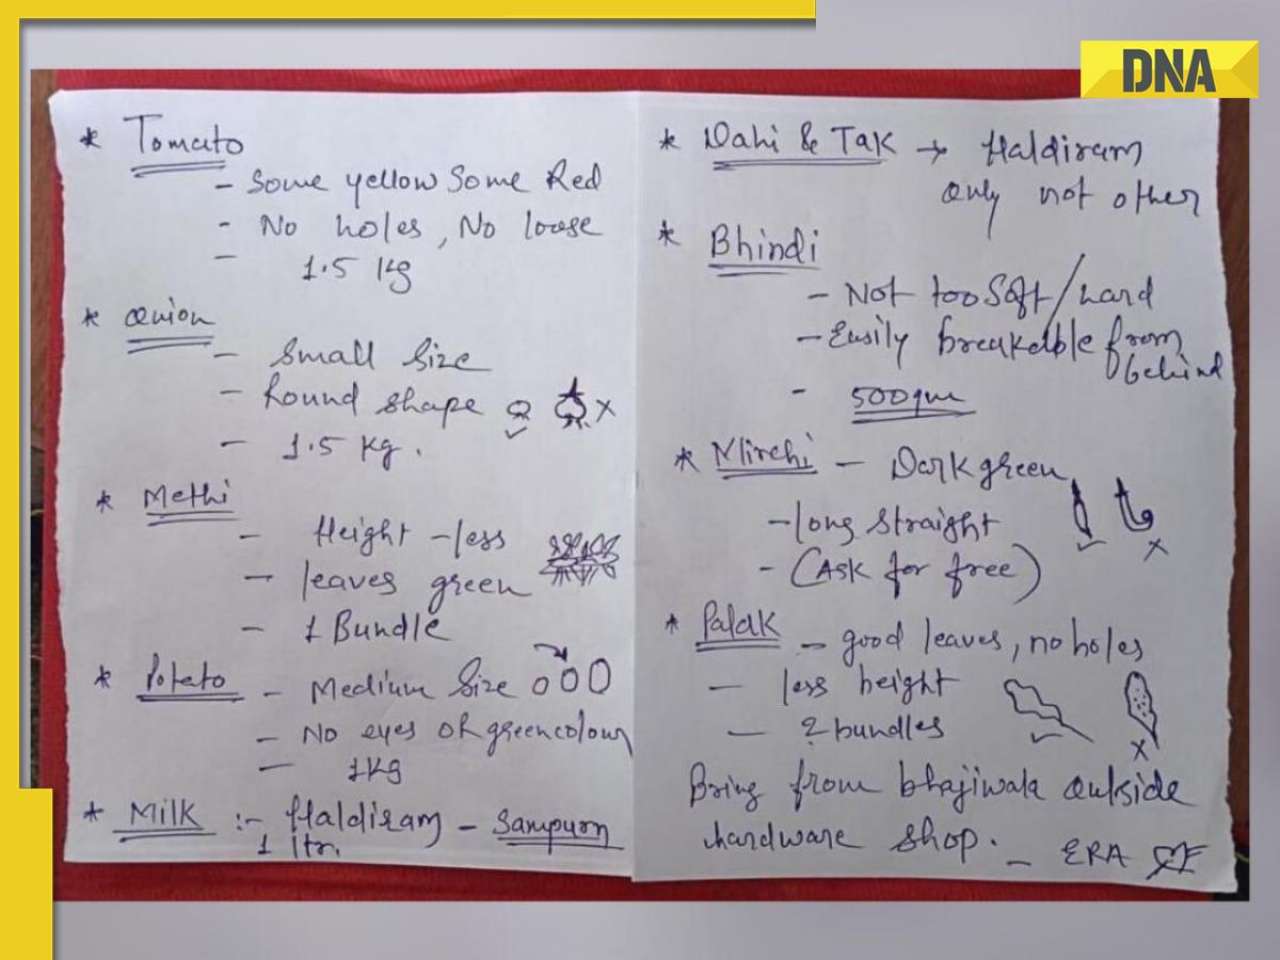 DNA
* Tomato
- Some yellow Some Red
- No holes, No loose
- 1.5 Kg
* Onion
- Small Size
- Round shape
- 1.5 Kg.
* Methi
- Height - less
- leaves green
- 1 Bundle
* Potato - Medium Size
- No eyes or green colour
- 1 Kg
* Milk :- Haldiram - Sampurn
1 ltr.
* Dahi & Tak → Haldiram
only not other
* Bhindi
- Not too Soft / hard
- Easily breakable from
behind
- 500gm
* Mirchi - Dark green
- long straight
- (Ask for free)
* Palak - good leaves, no holes
- less height
- 2 bundles
Bring from bhajiwala outside
hardware shop. - ERA